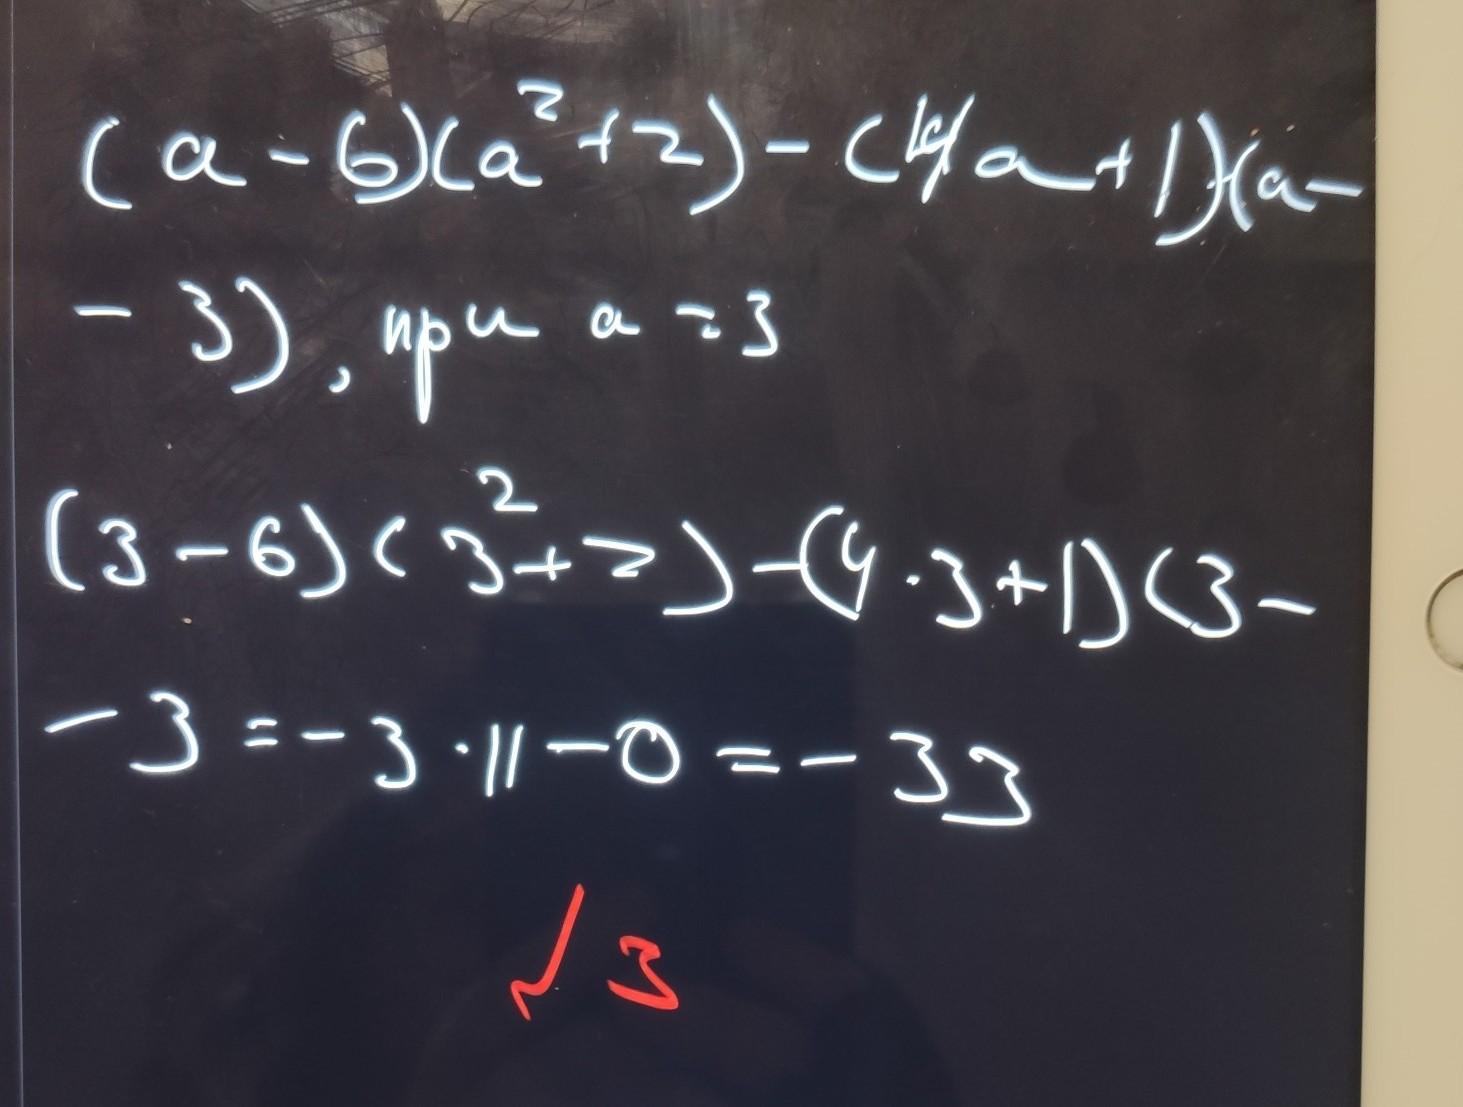 (a-6)(a²+2)-(4a+1)(a-
-3), при a=3
(3-6)(3²+2)-(4·3+1)(3-
-3=-3·11-0=-33
√3